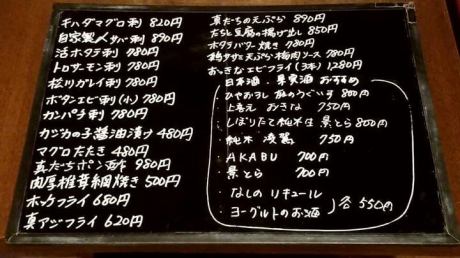 キハダマグロ刺 820円
自家製〆サバ刺 890円
活ホタテ刺 780円
トロサーモン刺 780円
松川ガレイ刺 780円
ボタンエビ刺(小) 780円
カンパチ刺 780円
カジカの子醤油漬け 480円
マグロたたき 480円
真だちポン酢 980円
肉厚椎茸網焼き 500円
ホッケフライ 680円
真アジフライ 620円
真だちの天ぷら 890円
だちと豆腐の揚げ出し 850円
ホタテバター焼き 780円
鶏ササミ天ぷら梅肉ソース 780円
おっきなエビフライ(3本) 1280円
日本酒・果実酒 おすすめ
・ひやおろし 800円
・上喜元 おきな 750円
・しぼりたて純米生 景とら 800円
・純米 750円
・AKABU 700円
・景とら 700円
・なしのリキュール
・ヨーグルトのお酒
各550円